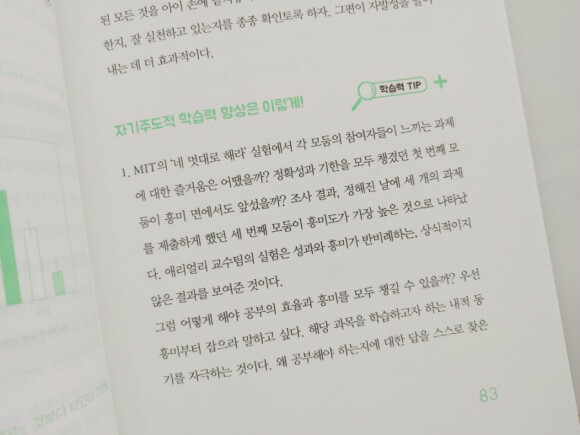 된 모든 것을 아이 손에
한지, 잘 실천하고 있는지를 종종 확인토록 하자. 그편이 자발성을
내는 데 더 효과적이다.
자기주도적 학습력 향상은 이렇게!
학습력 TIP
1. MIT의 ‘네 멋대로 해라’ 실험에서 각 모둠의 참여자들이 느끼는 과제
에 대한 즐거움은 어땠을까? 정확성과 기한을 모두 챙겼던 첫 번째 모
둠이 흥미 면에서도 앞섰을까? 조사 결과, 정해진 날에 세 개의 과제
를 제출하게 했던 세 번째 모둠이 흥미도가 가장 높은 것으로 나타났
다. 애리얼리 교수팀의 실험은 성과와 흥미가 반비례하는, 상식적이지
않은 결과를 보여준 것이다.
그럼 어떻게 해야 공부의 효율과 흥미를 모두 챙길 수 있을까? 우선
흥미부터 잡으라 말하고 싶다. 해당 과목을 학습하고자 하는 내적 동
기를 자극하는 것이다. 왜 공부해야 하는지에 대한 답을 스스로 찾은
83